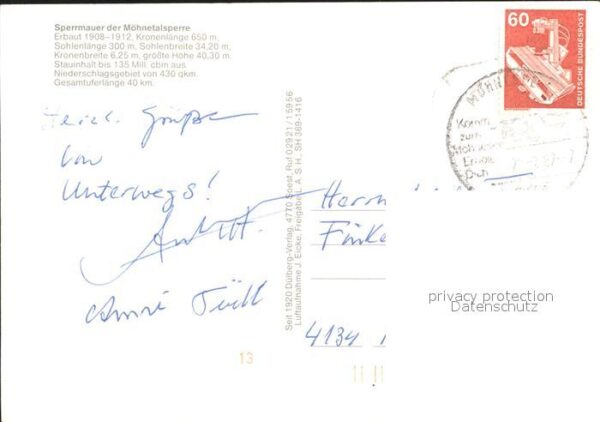 Sperrmauer der Möhnetalsperre
Erbaut 1908–1912, Kronenlänge 650 m,
Sohlenlänge 300 m, Sohlenbreite 34,20 m,
Kronenbreite 6,25 m, größte Höhe 40,30 m,
Stauinhalt bis 135 Mill. cbm aus
Niederschlagsgebiet von 430 qkm.
Gesamtuferlänge 40 km.
Herzl. Grüße
von
Unterwegs!
13
Seit 1920 Dülberg-Verlag, 4770 Soest, Ruf 02921/15956
Luftaufnahme J. Eicke, Freigabe L. A. S. H., SH 389-1416
60
DEUTSCHE BUNDESPOST
MÖHN
Komm
zum
Dich
Herrn
Finke
4134
privacy protection
Datenschutz